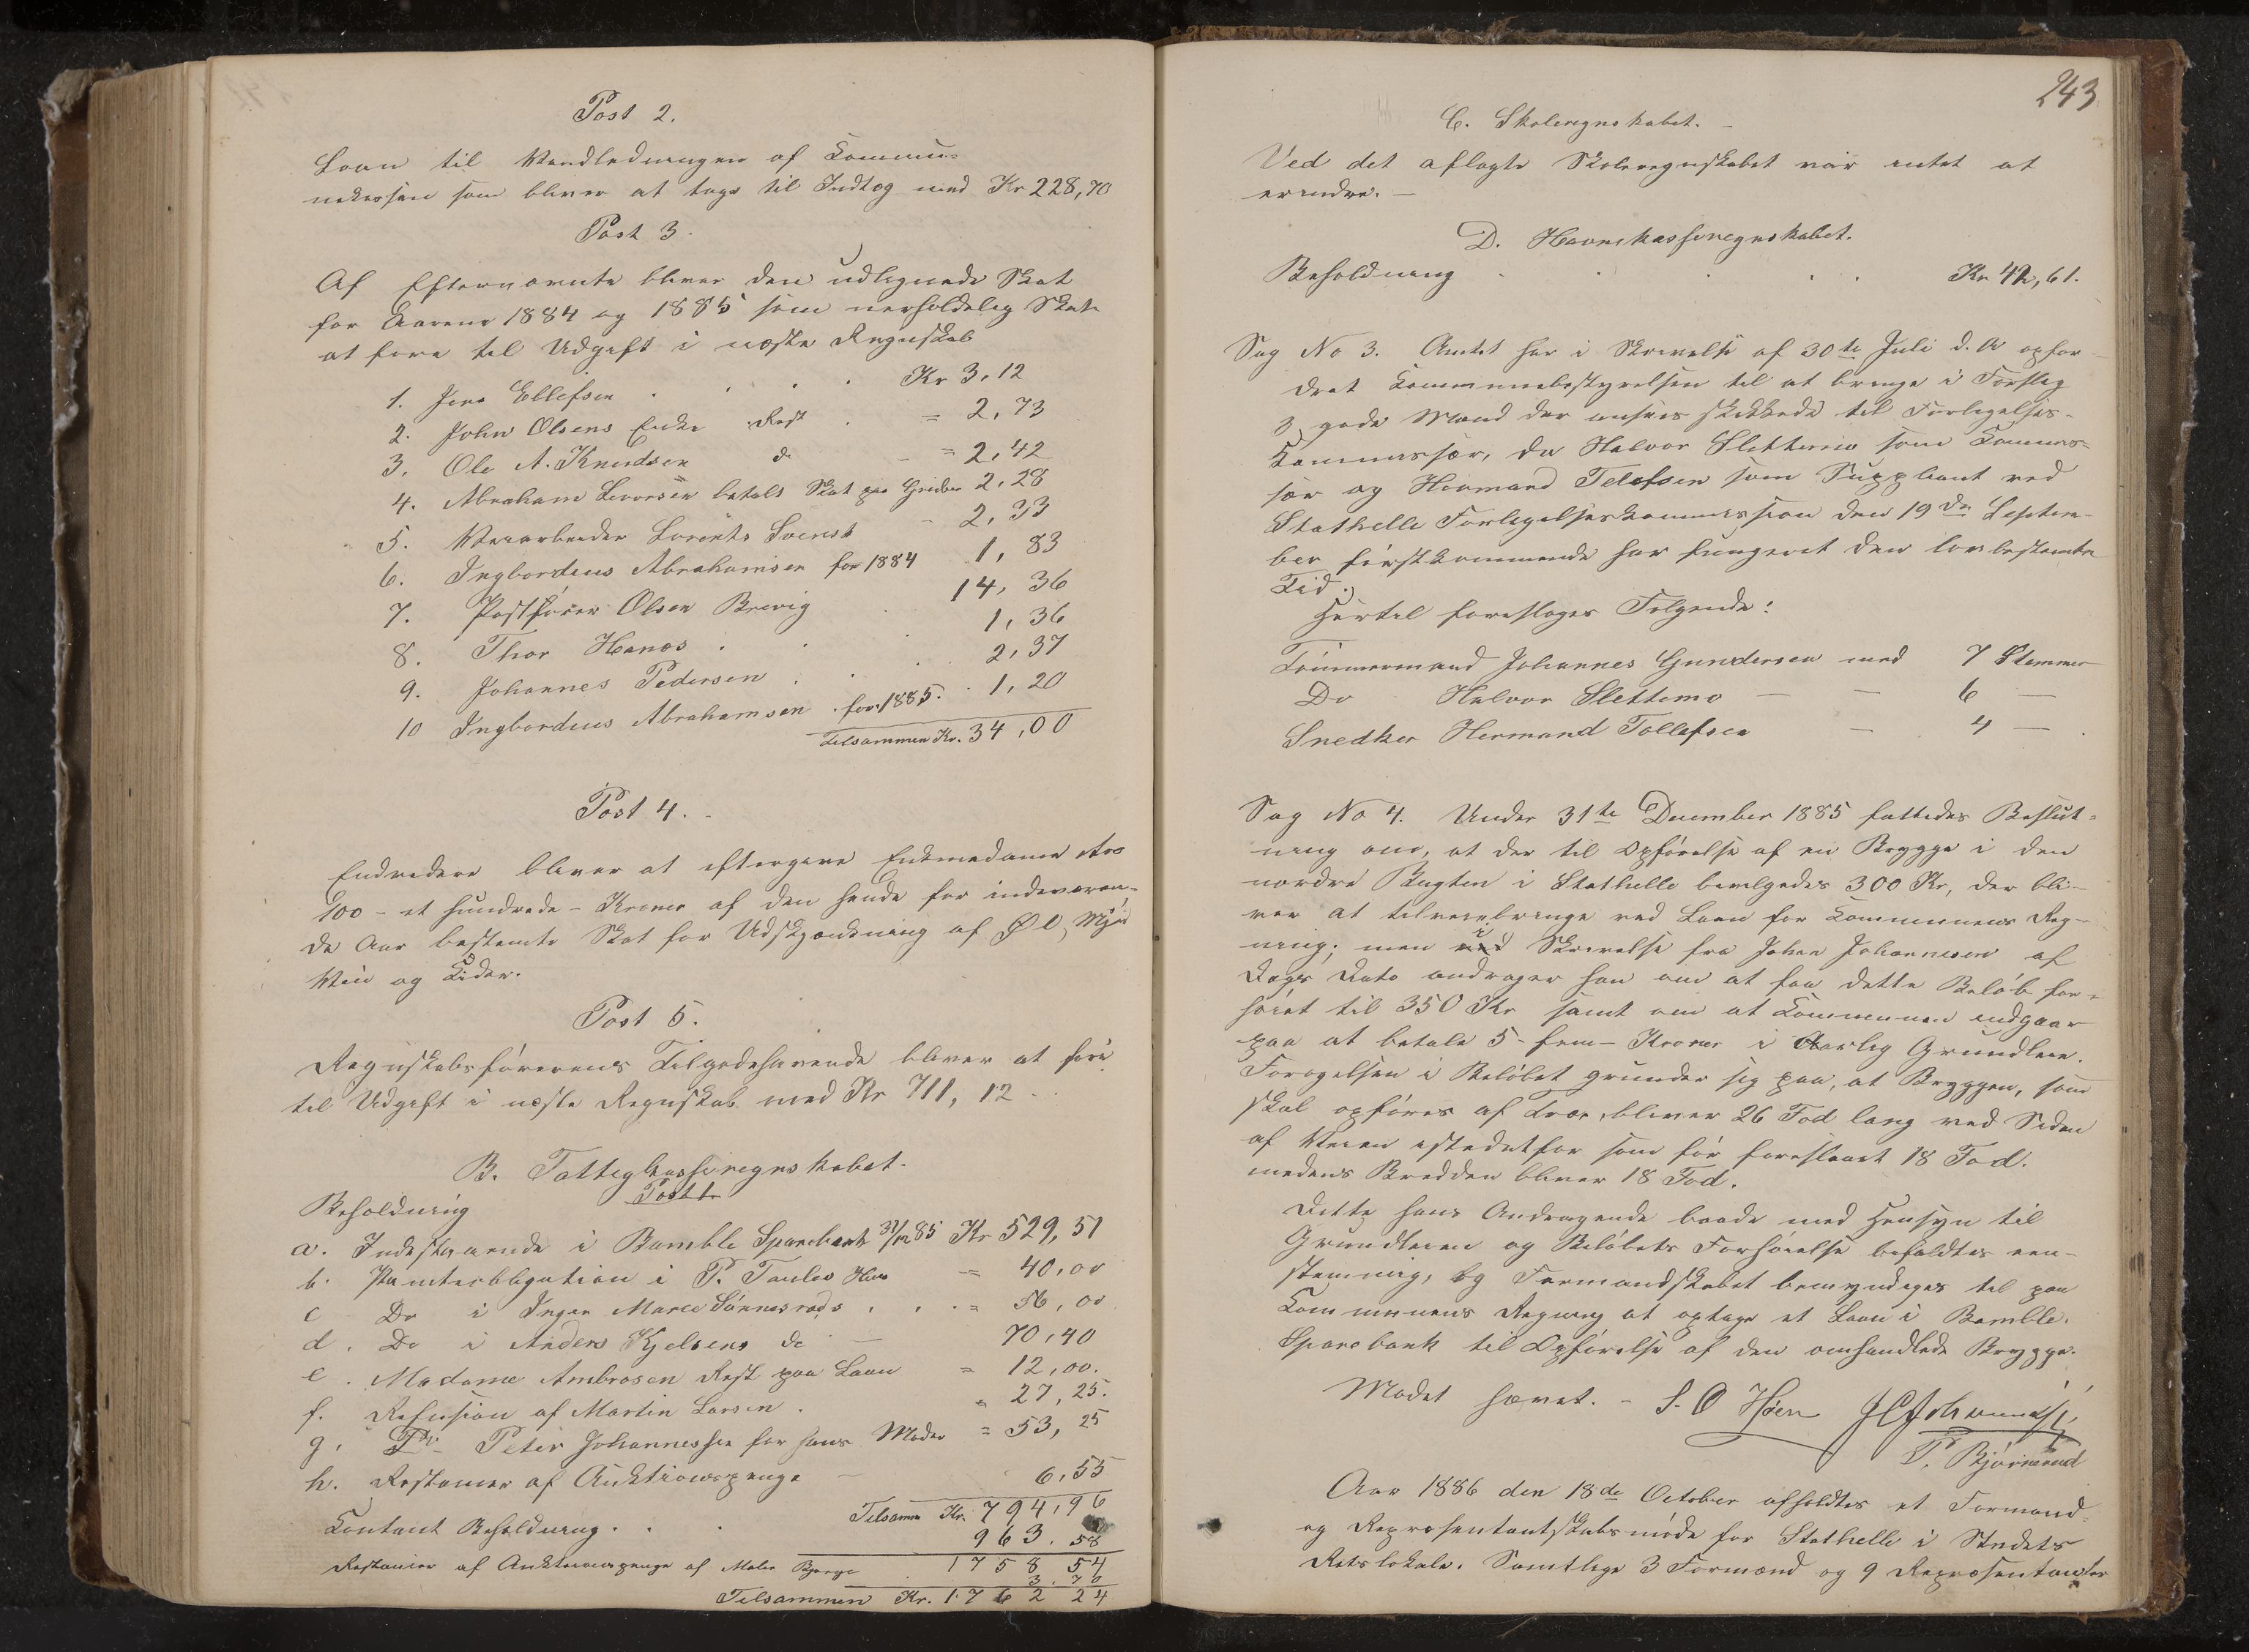 Post 2.
Laan til Vandledningen af Kommu-
nekassen som bliver at tage til Indtog med Kr 228,70
Post 3.
Af Efternævnte bliver den udlignede Skat
for Aarene 1884 og 1885 som uerholdelig Skat
at føre til Udgift i næste Regnskab
1. Jens Ellefsen . . . . Kr 3,12
2. John Olsens Enke Rest . = 2,73
3. Ole A. Knudsen do - = 2,42
4. Abraham Levorsen betalt Skat paa 2,28
5. Veiarbeider Lorents - 2,33
6. Ingbordius Abrahamsen for 1884 1,83
7. Postfører Olsen Brevig . 14,36
8. Thor Hanes . . . 1,36
9. Johannes Pedersen . . . 2,37
10 Ingbordius Abrahamsen . for 1885. . 1,20
Tilsammen Kr. 34,00
Post 4. -
Endvidere bliver at eftergive Enkemadame Aro
100 - et hundrede - Kroner af den hende for indeværen-
de Aar bestemte Skat for Udskjænkning af Øl, Mjød
Vin og Cider.
Post 5.
Regnskabsførerens Tilgodehavende bliver at føre
til Udgift i næste Regnskab med Kr 711,12 -
B. Fattigkasseregnskabet.
Beholdning Post 1
a. Indestaaende i Bamble Sparebank 31/12 85 Kr 529,51
b. Panteobligation i P. Taules Huus = 40,00
c Do i Inger Marie Sønnesrøds . . . = 56,00
d. Do i Anders Kjelsens do — 70,40
e. Madame Ambrosen Rest paa Laan = 12,00.
f. Refusion af Martin Larsen . = 27,25.
g. Do Peter Johannessen for hans Moder = 53,25
h. Restancer af Auktionspenge — 6,55
Tilsamm Kr. 794,96
Kontant Beholdning . . . 963.58
1758 54
Restancer af Auktionspenge af Maler Bjerge . 3.70
Tilsammen Kr. 1762 24
243
C. Skoleregnskabet. -
Ved det aflagte Skoleregnskabet var intet at
erindre. —
D. Havnekasseregnskabet.
Beholdning . . . . . Kr 42,61.
Sag No 3. Amtet har i Skrivelse af 30te Juli d. A opfor-
dret Kommunebestyrelsen til at bringe i Forslag
3 gode Mænd der ansees skikkede til Forligelses-
Kommissær, da Halvor Slettemo som Kommis-
sær og Hermand Tollefsen som Suppleant ved
Stathelle Forligelseskommission den 19de Septem-
ber førstkommende har fungeret den lovbestemte
Tid.
Hertil foreslages Følgende:
Tømmermand Johannes Gundersen med 7 Stemmer
Do Halvor Slettemo — — 6 —
Snedker Hermand Tollefsen — 4 —
Sag No 4. Under 31te December 1885 fattedes Beslut-
ning om, at der til Opførelse af en Brygge i den
nordre Bugten i Stathelle bevilgedes 300 Kr, der bli-
ver at tilveiebringe ved Laan for Kommunens Reg-
ning; men i Skrivelse fra Johan Johannesen af
Dags Dato andrager han om at faa dette Beløb for-
høiet til 350 Kr samt om at Kommunen indgaar
paa at betale 5 - fem - Kroner i aarlig Grundleie.
Forøgelsen i Beløbet grunder sig paa, at Bryggen, som
skal opføres af Træ, bliver 26 Fod lang ved Siden
af Veien istedetfor som før foreslaaet 18 Fod.
medens Bredden bliver 18 Fod.
Dette hans Andragende baade med Hensyn til
Grundleien og Beløbets Forhøielse bifaldtes een-
stemmig, og Formandskabet bemyndiges til paa
Kommunens Regning at optage et Laan i Bamble
Sparebank til Opførelse af den omhandlede Brygge.
Mødet hævet. - S. O Høen
T. Bjørnerud
Aar 1886 den 18de October afholdtes et Formand-
og Repræsentantskabsmøde for Stathelle i Stedets
Retslokale. Samtlige 3 Formænd og 9 Repræsentanter